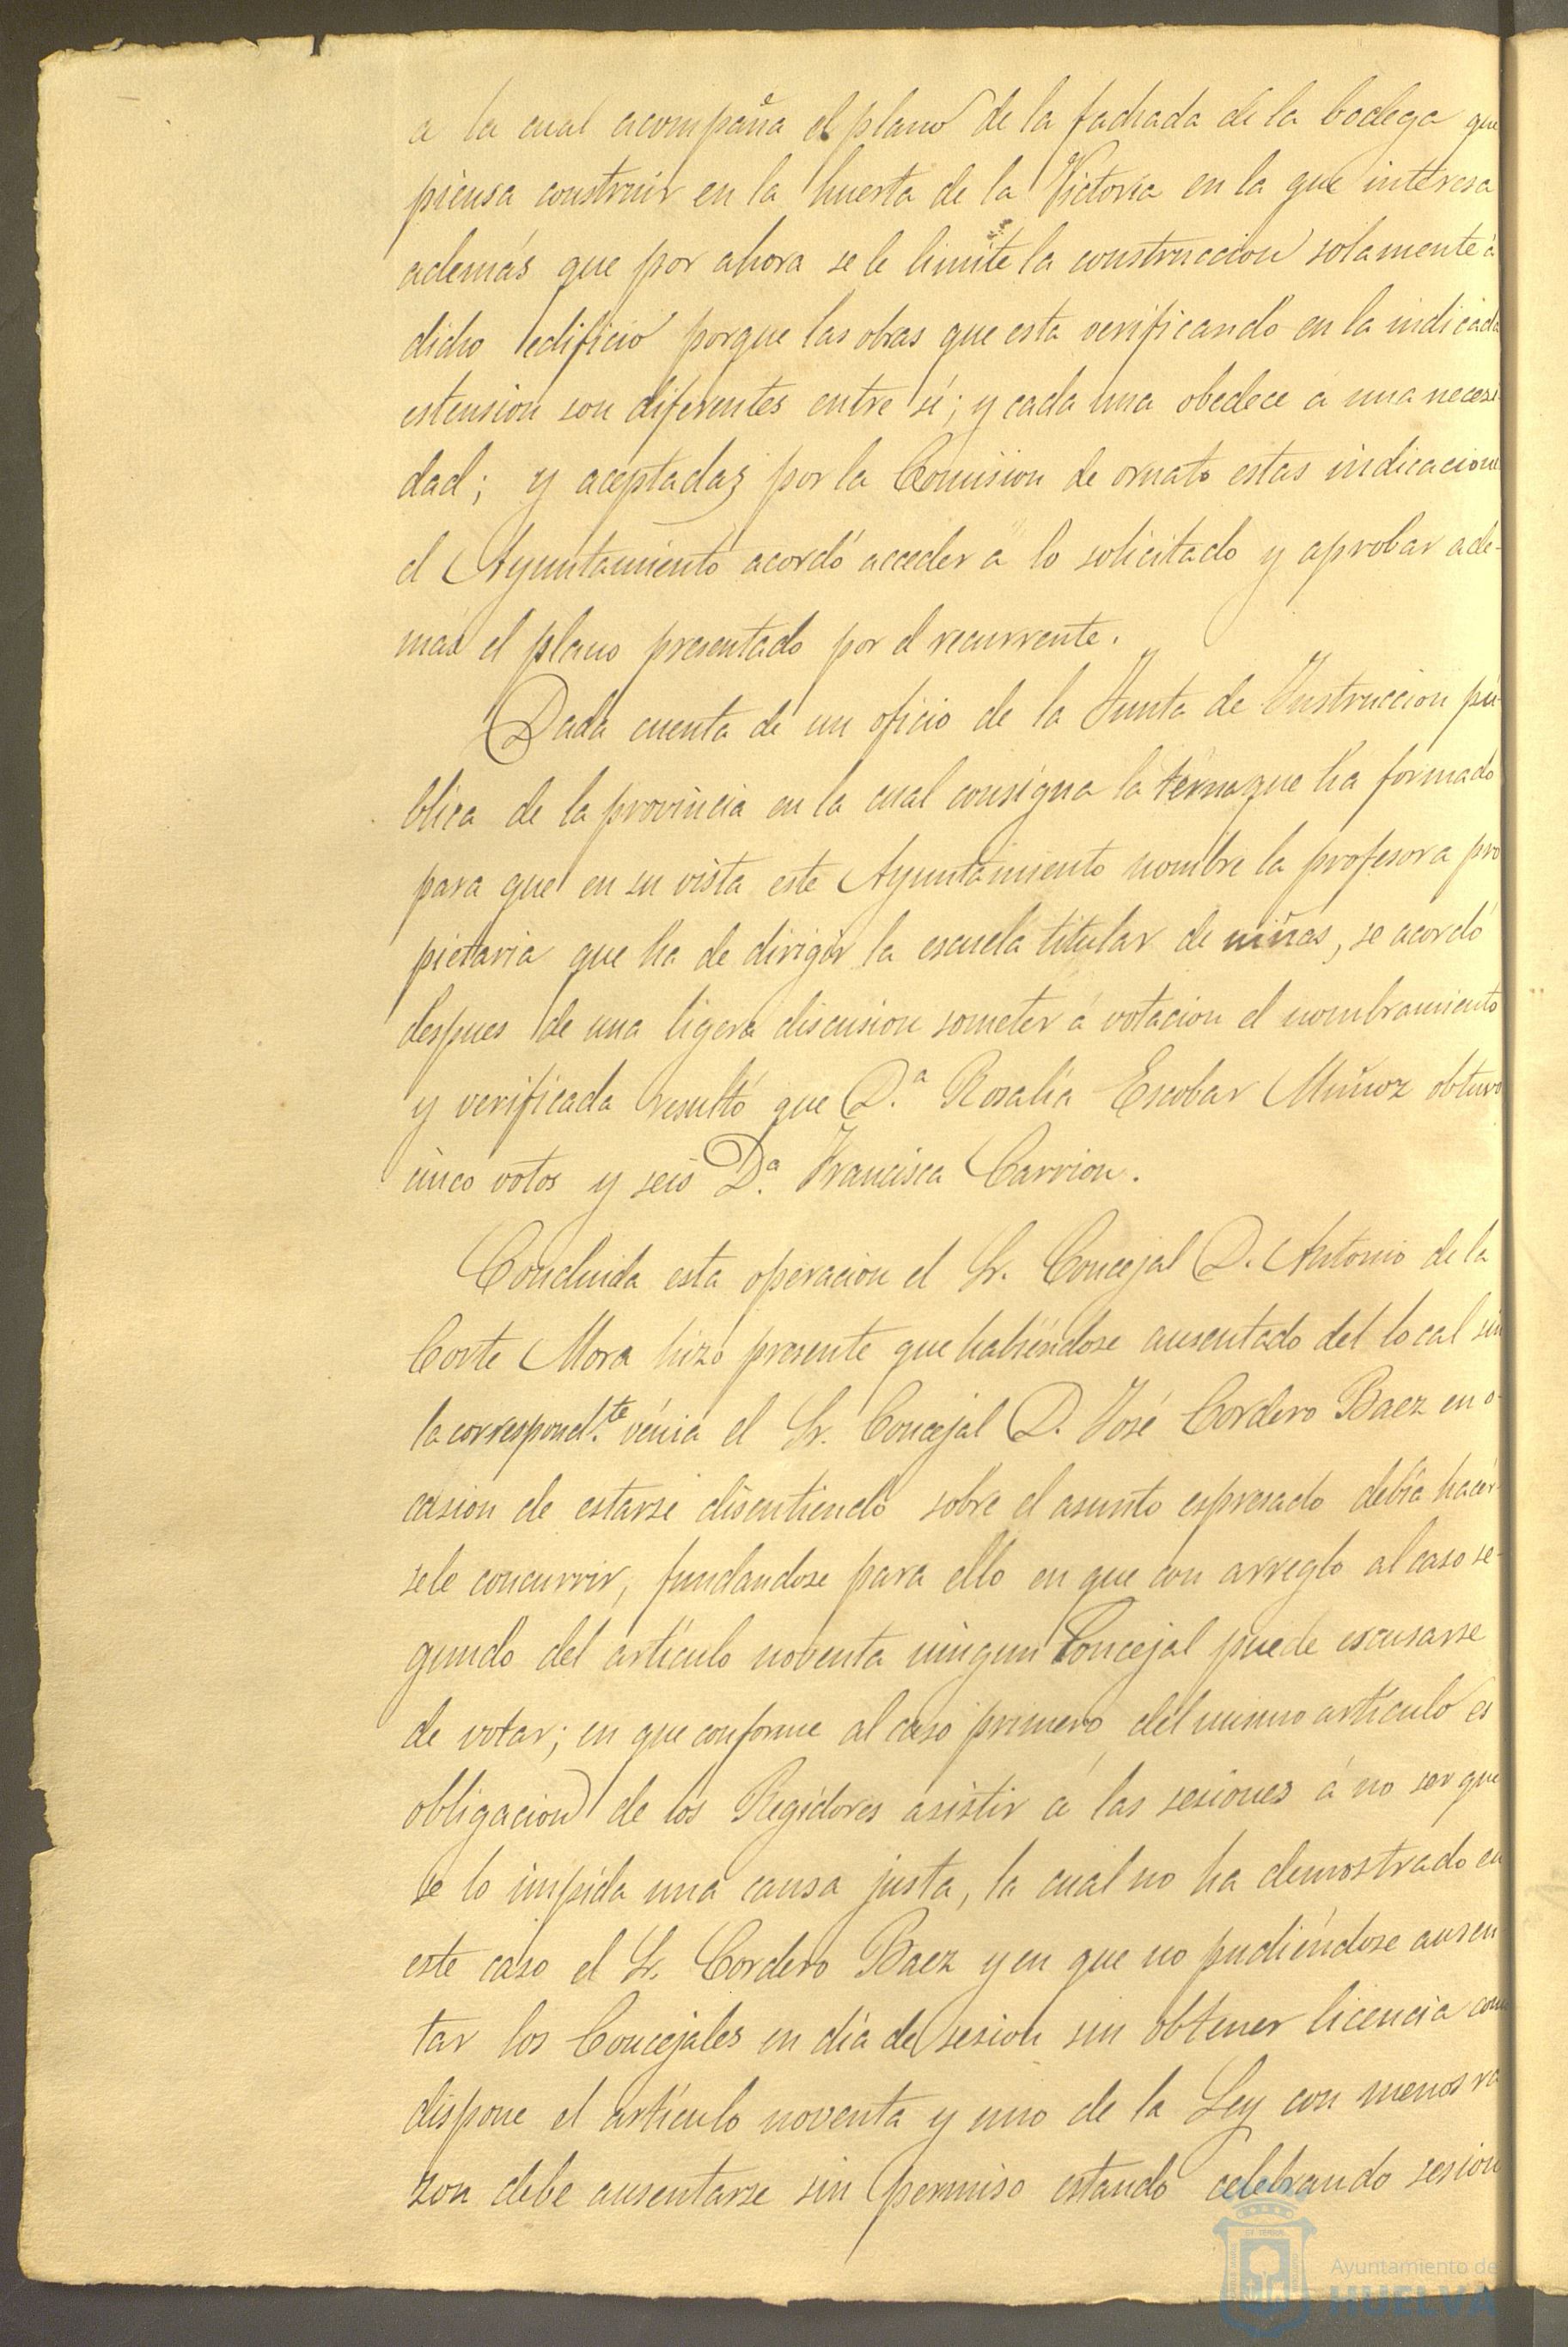 a la cual acompaña el plano de la fachada de la bodega que
piensa construir en la huerta de la Victoria en la que interesa
además que por ahora se le limite la construccion solamente á
dicho edificio porque las obras que esta verificando en la indicada
estension son diferentes entre sí; y cada una obedece á una necesi
dad; y aceptadas por la Comision de ornato estas indicaciones
el Ayuntamiento acordó acceder á lo solicitado y aprobar ade-
más el plano presentado por el recurrente.
Dada cuenta de un oficio de la Junta de Instruccion pú-
blica de la provincia en la cual consigna la terna que ha formado
para que en su vista este Ayuntamiento nombre la profesora pro
pietaria que ha de dirigir la escuela titular de niñas, se acordó
despues de una ligera discusion someter á votacion el nombramiento
y verificada resultó que D.ª Rosalía Escobar Muñoz obtuvo
cinco votos y seis D.ª Francisca Carrion.
Concluida esta operacion el Sr. Concejal D. Antonio de la
Corte Mora hizo presente que habiéndose ausentado del local sin
la correspond.te vénia el Sr. Concejal D. José Cordero Baez en o-
casion de estarse discutiendo sobre el asunto espresado debía hacér-
sele concurrir, fundandose para ello en que con arreglo al caso se-
gundo del artículo noventa ningun Concejal puede escusarse
de votar; en que conforme al caso primero del mismo artículo es
obligacion de los Regidores asistir á las sesiones á no ser que
se lo impida una causa justa, la cual no ha demostrado en
este caso el Sr. Cordero Baez y en que no pudiéndose ausen
tar los Concejales en día de sesion sin obtener licencia como
dispone el artículo noventa y uno de la Ley con menos ra
zon debe ausentarse sin permiso estando celebrando sesion
Ayuntamiento de
HUELVA